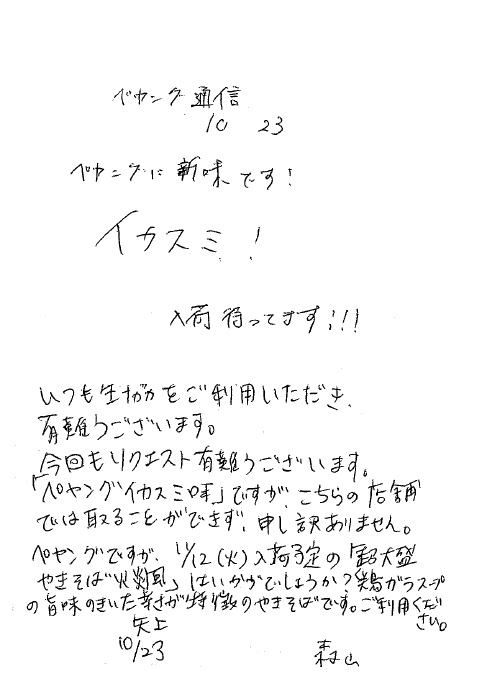 ペヤング通信
10 23
ペヤングに新味です!
イカスミ!
入荷待ってます!!!
いつも生協をご利用いただき、
有難うございます。
今回もリクエスト有難うございます。
「ペヤングイカスミ味」ですが、こちらの店舗
では取ることができず、申し訳ありません。
ペヤングですが、11/12(火)入荷予定の「超大盛
やきそば 風」はいかがでしょうか?鶏ガラスープ
の旨味のきいた辛さが特徴のやきそばです。ご利用くだ
さい。
矢上
10/23 森山